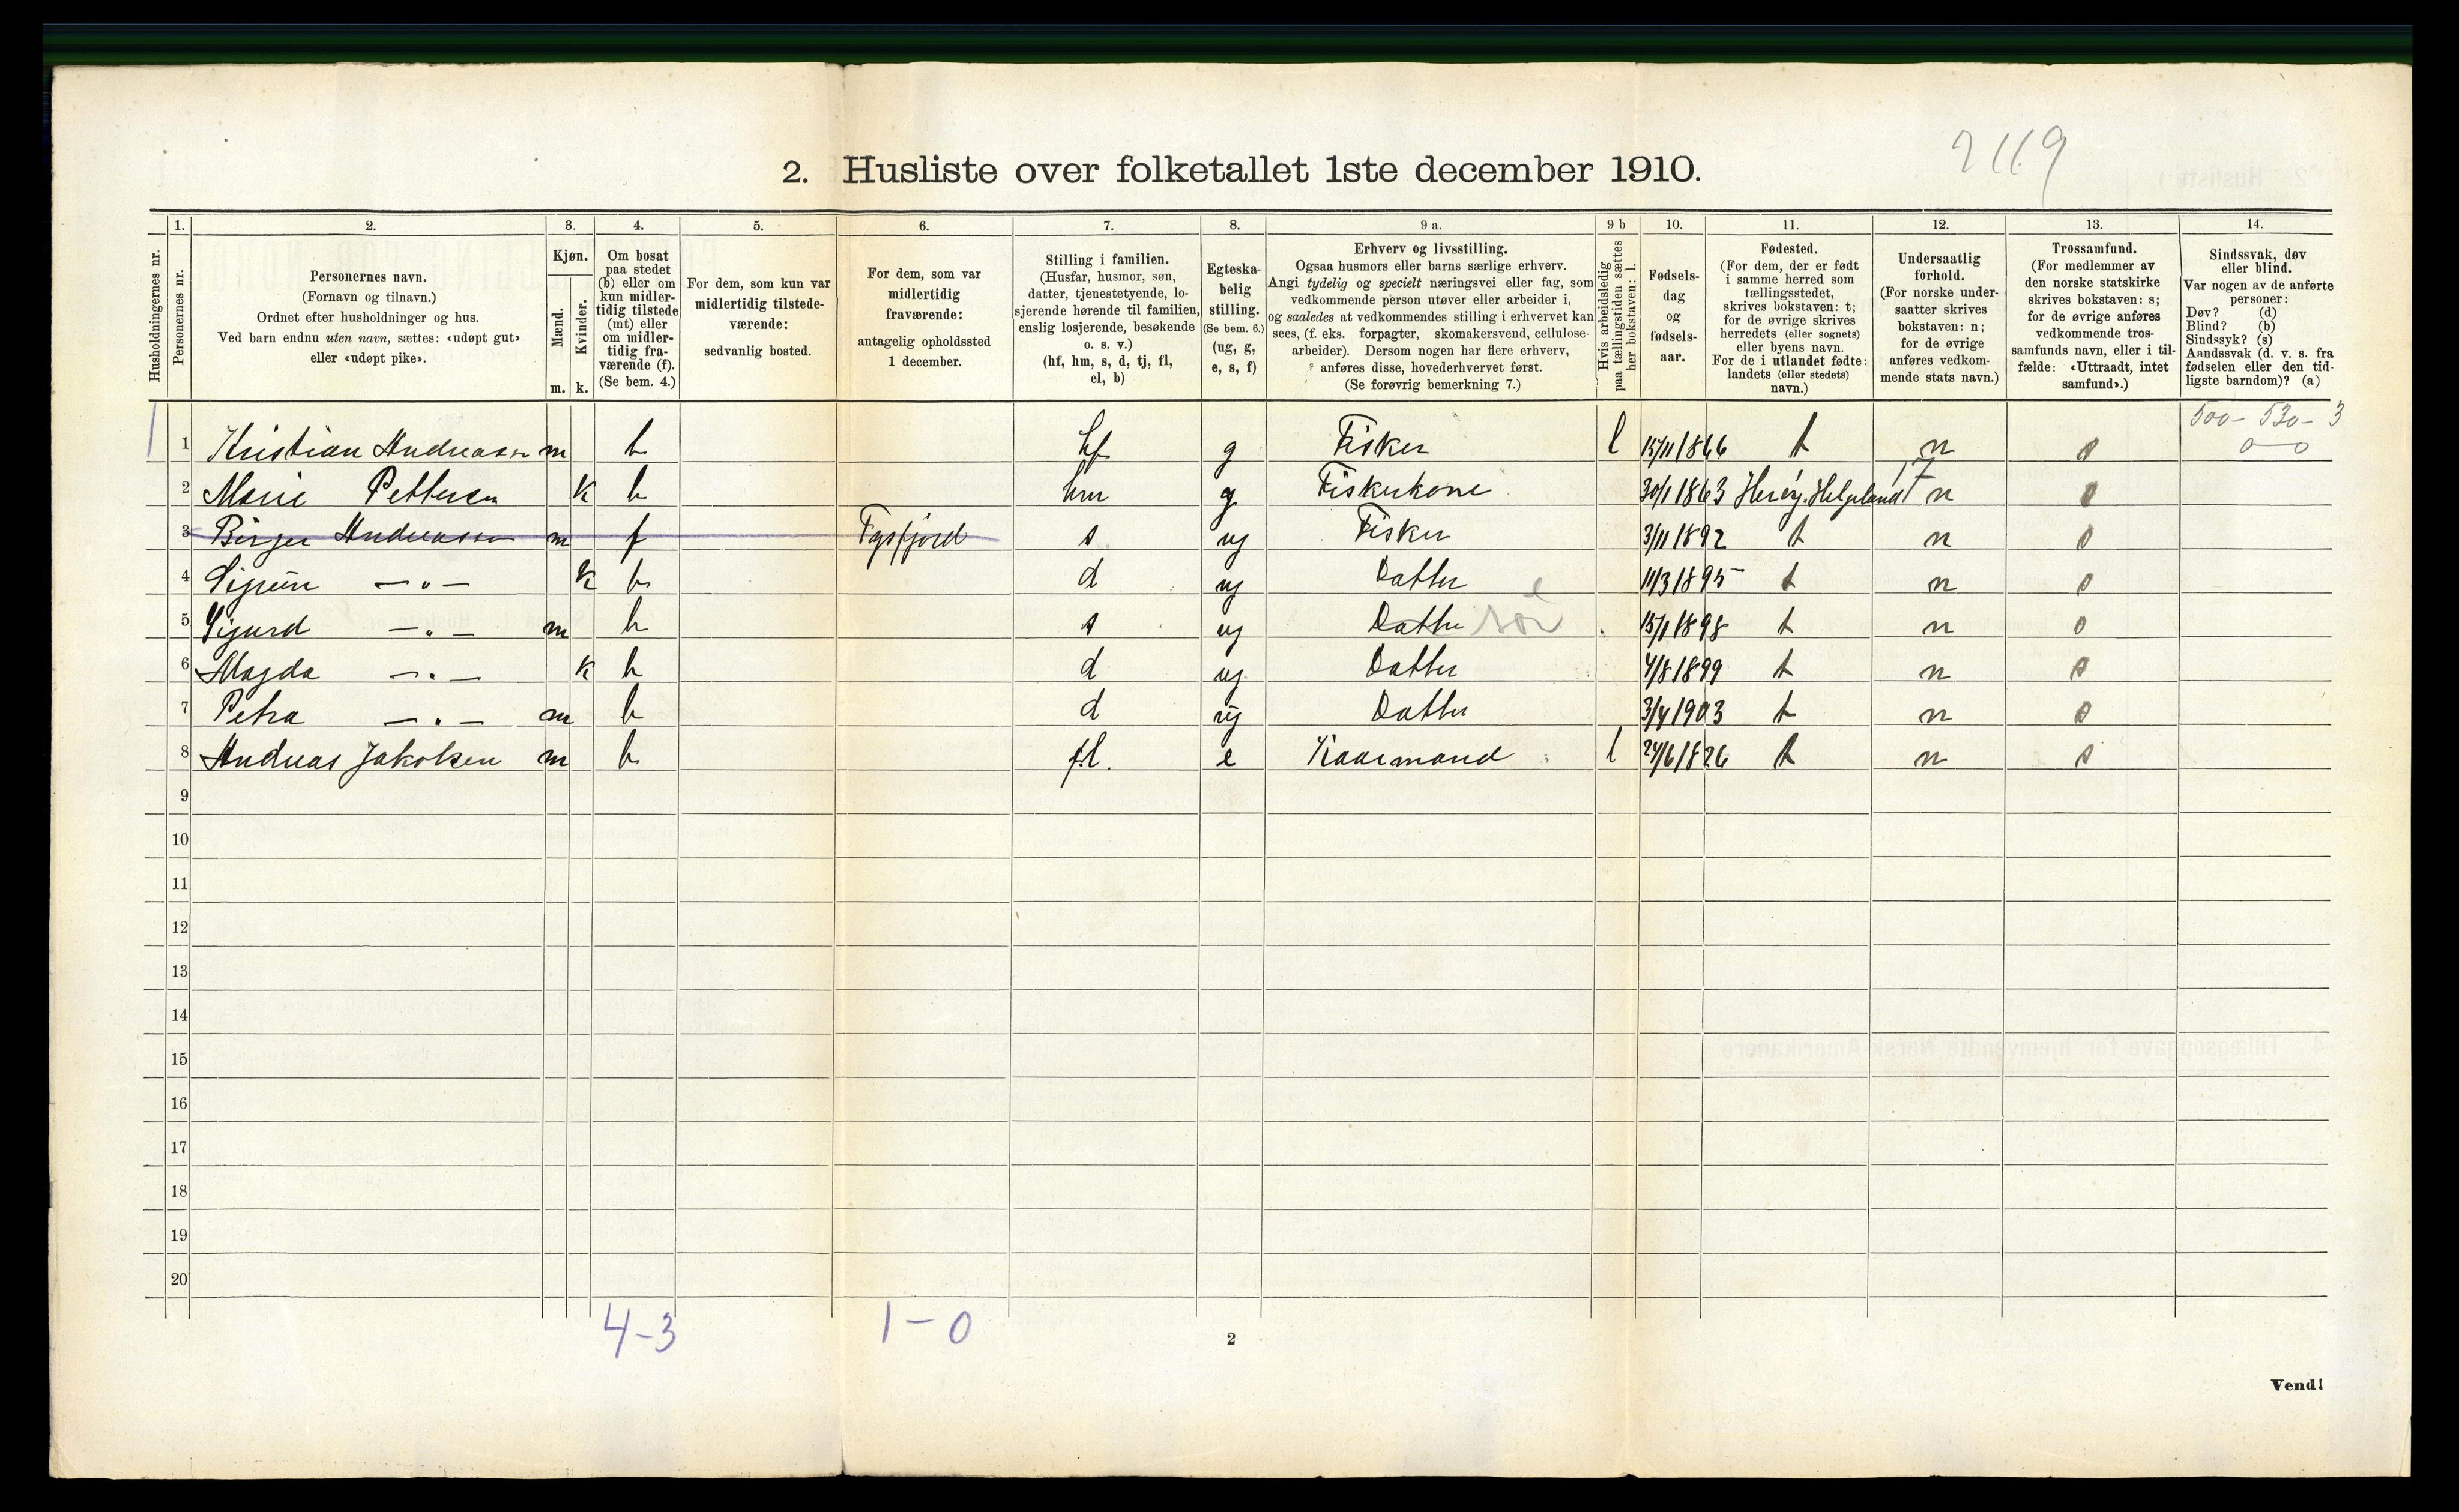 2119
2. Husliste over folketallet 1ste december 1910.
Husholdningernes nr.
1. Personernes nr.
2. Personernes navn.
(Fornavn og tilnavn.)
Ordnet efter husholdninger og hus.
Ved barn endnu uten navn, sættes: «udøpt gut»
eller «udøpt pike».
3. Kjøn.
Mænd. m.
Kvinder. k.
4. Om bosat
paa stedet
(b) eller om
kun midler-
tidig tilstede
(mt) eller
om midler-
tidig fra-
værende (f).
(Se bem. 4.)
5. For dem, som kun var
midlertidig tilstede-
værende:
sedvanlig bosted.
6. For dem, som var
midlertidig
fraværende:
antagelig opholdssted
1 december.
7. Stilling i familien.
(Husfar, husmor, søn,
datter, tjenestetyende, lo-
sjerende hørende til familien,
enslig losjerende, besøkende
o. s. v.)
(hf, hm, s, d, tj, fl,
el, b)
8. Egteska-
belig
stilling.
(Se bem. 6.)
(ug, g,
e, s, f)
9 a. Erhverv og livsstilling.
Ogsaa husmors eller barns særlige erhverv.
Angi tydelig og specielt næringsvei eller fag, som
vedkommende person utøver eller arbeider i,
og saaledes at vedkommendes stilling i erhvervet kan
sees, (f. eks. forpagter, skomakersvend, cellulose-
arbeider). Dersom nogen har flere erhverv,
anføres disse, hovederhvervet først.
(Se forøvrig bemerkning 7.)
9 b Hvis arbeidsledig
paa tællingstiden sættes
her bokstaven: l.
10. Fødsels-
dag
og
fødsels-
aar.
11. Fødested.
(For dem, der er født
i samme herred som
tællingsstedet,
skrives bokstaven: t;
for de øvrige skrives
herredets (eller sognets)
eller byens navn.
For de i utlandet fødte:
landets (eller stedets)
navn.)
12. Undersaatlig
forhold.
(For norske under-
saatter skrives
bokstaven: n;
for de øvrige
anføres vedkom-
mende stats navn.)
13. Trossamfund.
(For medlemmer av
den norske statskirke
skrives bokstaven: s;
for de øvrige anføres
vedkommende tros-
samfunds navn, eller i til-
fælde: «Uttraadt, intet
samfund».)
14. Sindssvak, døv
eller blind.
Var nogen av de anførte
personer:
Døv? (d)
Blind? (b)
Sindssyk? (s)
Aandssvak (d. v. s. fra
fødselen eller den tid-
ligste barndom)? (a)
500-530-3
0-0
1 1 Kristian Andreasen m b hf g Fisker l 15/11 1866 t n s
2 Marie Pettersen k b hm g Fiskerkone 30/1 1863 Herøy. Helgeland 17 n s
3 Birger Andreasen m f s ug Fisker 3/11 1892 t n s
4 Sigrun —„— k b d ug Datter 11/3 1895 t n s
5 Sigurd —„— m b s ug Datter søn 15/1 1898 t n s
6 Magda —„— k b d ug Datter 4/8 1899 t n s
7 Petra —„— m b d ug Datter 3/4 1903 t n s
8 Andreas Jakobsen m b fl. e Kaarmand l 24/6 1826 t n s
9
10
11
12
13
14
15
16
17
18
19
20
4-3 1-0
2
Vend!